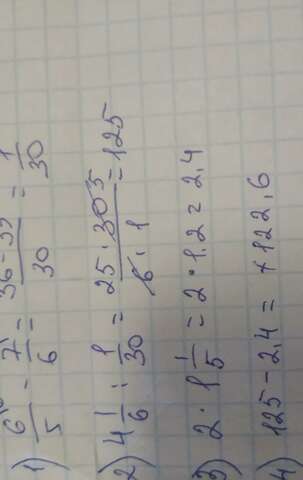 1) 6/5 - 7/6 = 36-35/30 = 1/30
2) 4 1/6 : 1/30 = 25 · 30 5/6 · 1 = 125
3) 2 · 1 1/5 = 2 · 1.2 = 2,4
4) 125 - 2,4 = +122,6